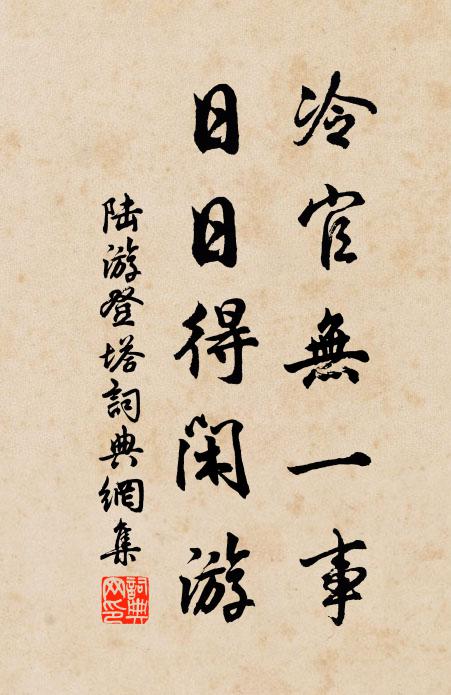 冷官無一事
日日得閑游
陆游登塔詞典網集
詞典網印